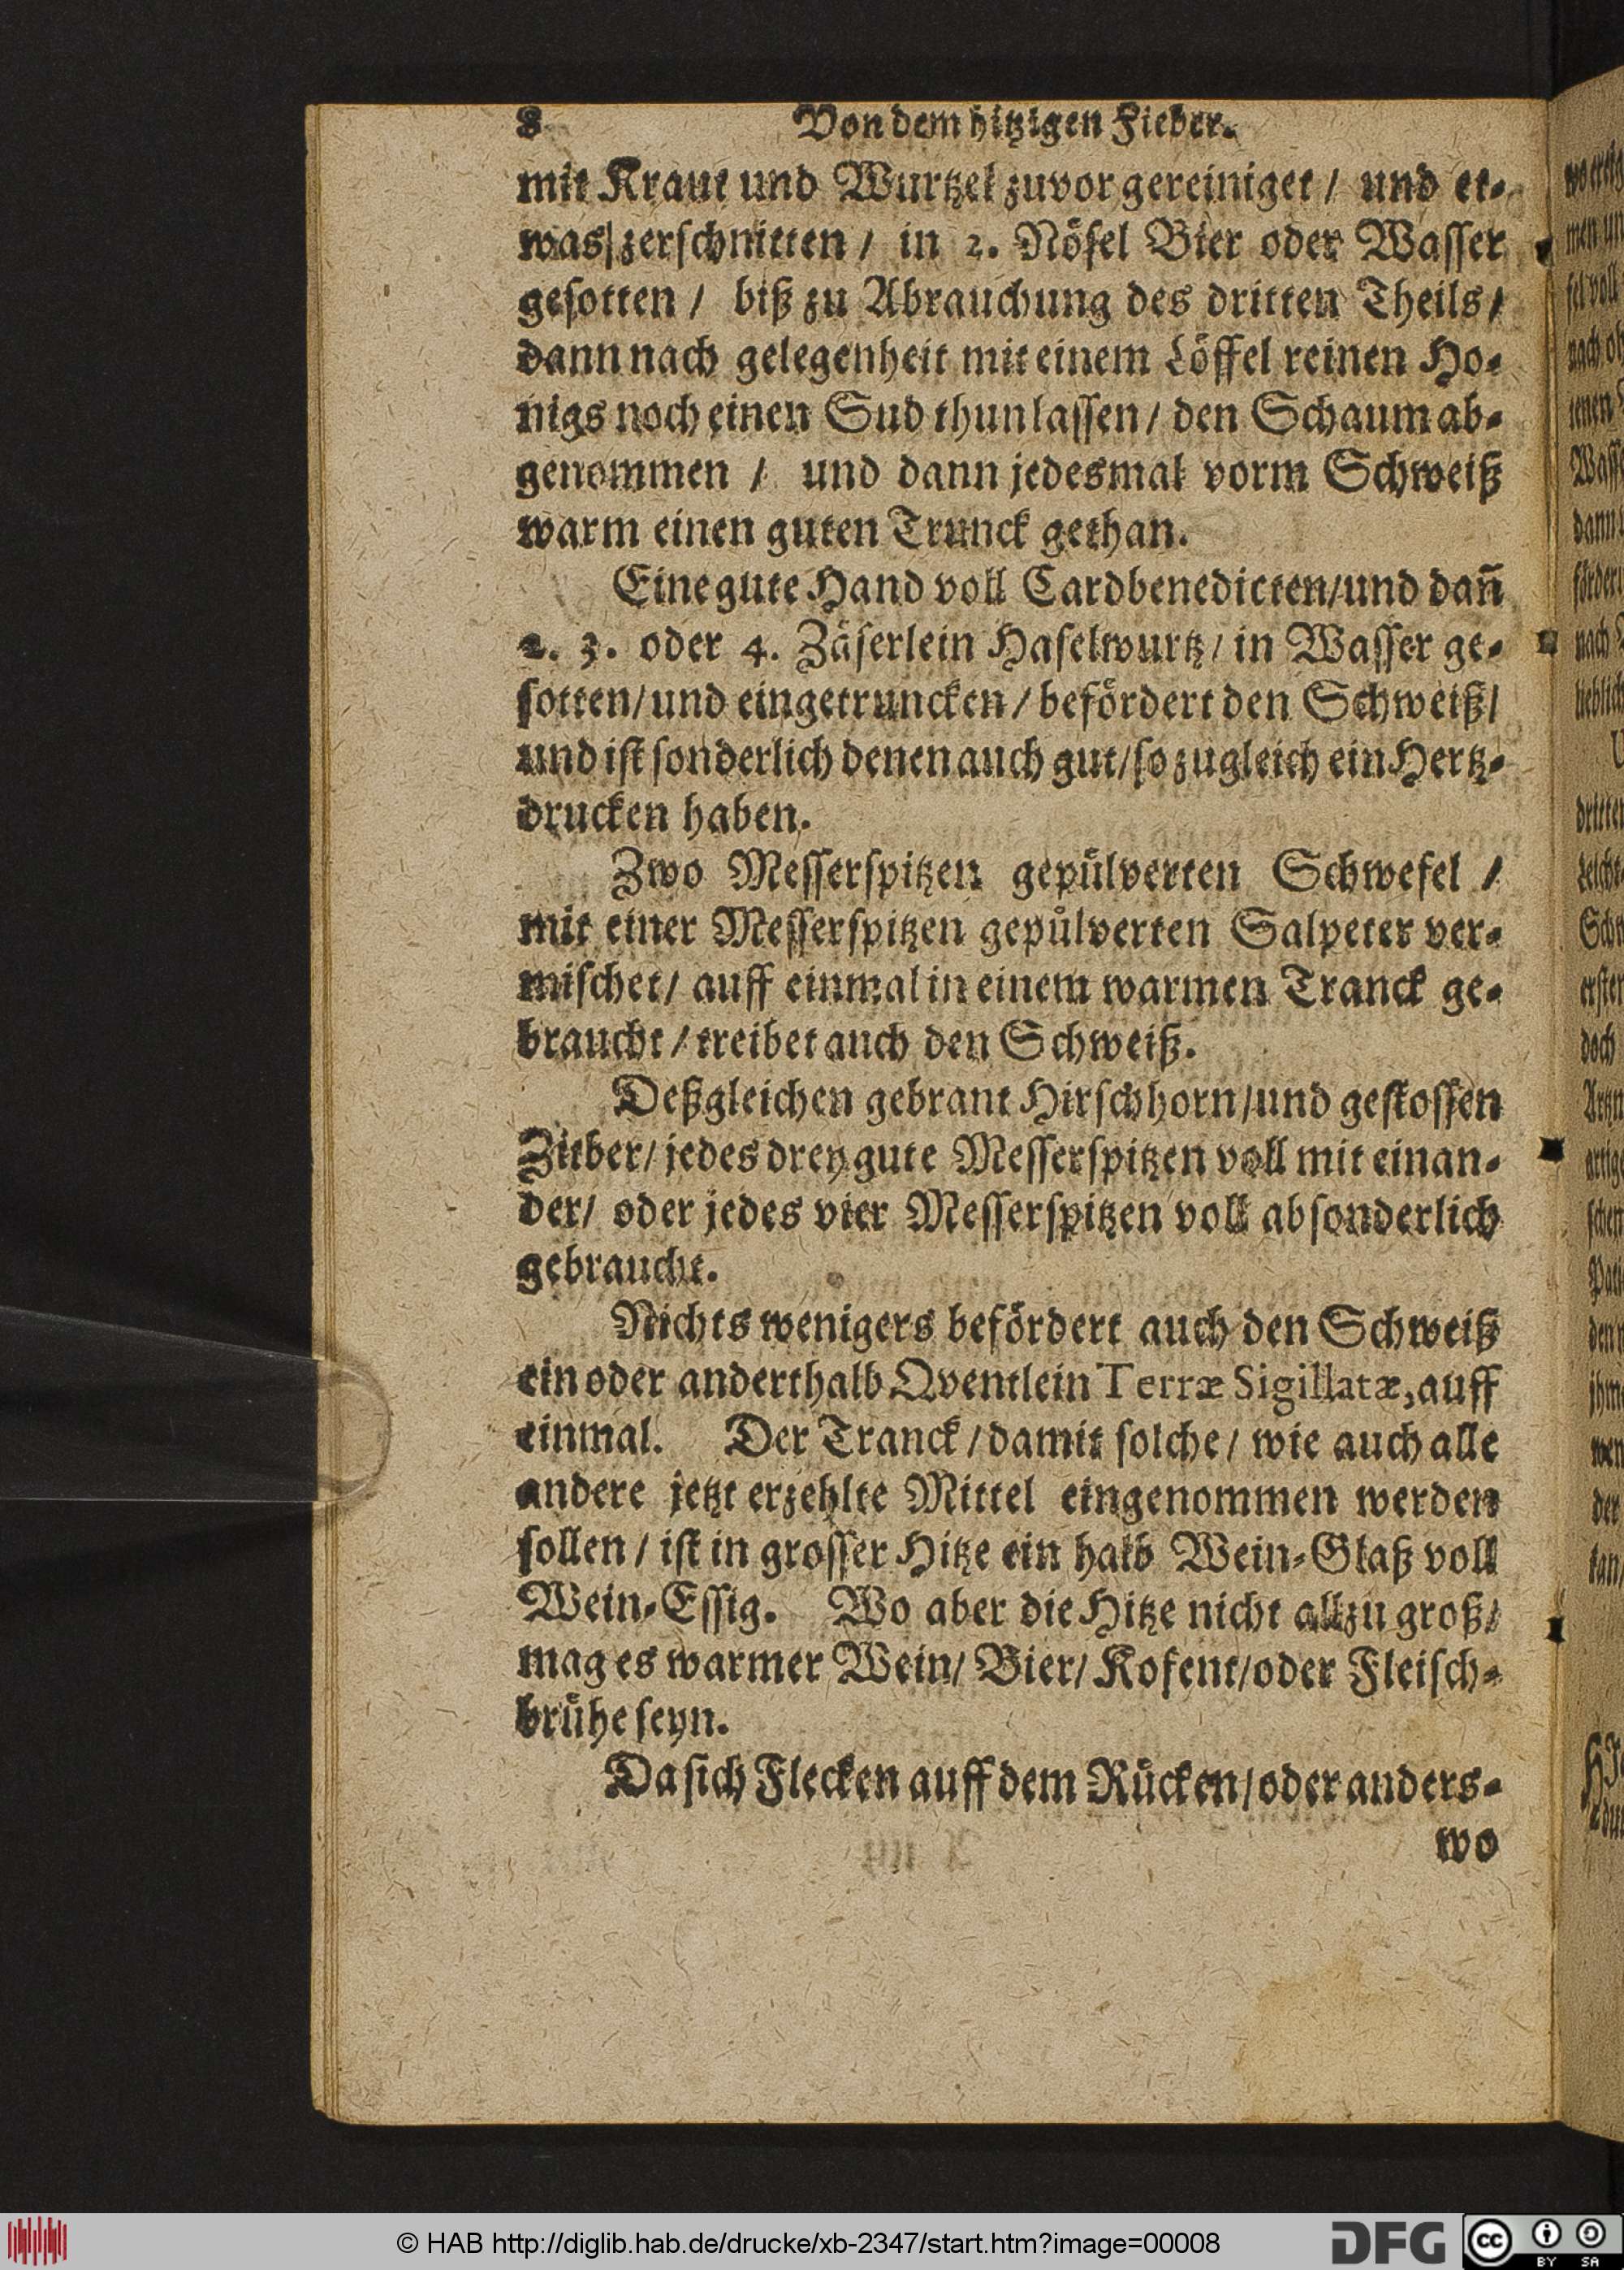 8 Von dem hitzigen Fieber.
mit Kraut und Wurtzel zuvor gereiniget / und et-
was zerschnitten / in 2. Nösel Bier oder Wasser
gesotten / biß zu Abrauchung des dritten Theils /
dann nach gelegenheit mit einem Löffel reinen Ho-
nigs noch einen Sud thun lassen / den Schaum ab-
genommen / und dann jedesmal vorm Schweiß
warm einen guten Trunck gethan.
Eine gute Hand voll Cardbenedicten / und dañ
2. 3. oder 4. Zäserlein Haselwurtz / in Wasser ge-
sotten / und eingetruncken / befördert den Schweiß /
und ist sonderlich denen auch gut / so zugleich ein Hertz-
drucken haben.
Zwo Messerspitzen gepülverten Schwefel /
mit einer Messerspitzen gepülverten Salpeter ver-
mischet / auff einmal in einem warmen Tranck ge-
braucht / treibet auch den Schweiß.
Deßgleichen gebrant Hirschhorn / und gestossen
Zitber / jedes drey gute Messerspitzen voll mit einan-
der / oder jedes vier Messerspitzen voll absonderlich
gebraucht.
Nichts wenigers befördert auch den Schweiß
ein oder anderthalb Qventlein Terræ Sigillatæ, auff
einmal. Der Tranck / damit solche / wie auch alle
andere jetzt erzehlte Mittel eingenommen werden
sollen / ist in grosser Hitze ein halb Wein-Glaß voll
Wein-Essig. Wo aber die Hitze nicht allzu groß /
mag es warmer Wein / Bier / Kofent / oder Fleisch-
brühe seyn.
Da sich Flecken auff dem Rücken / oder anders-
wo
© HAB http://diglib.hab.de/drucke/xb-2347/start.htm?image=00008
DFG
cc
BY SA